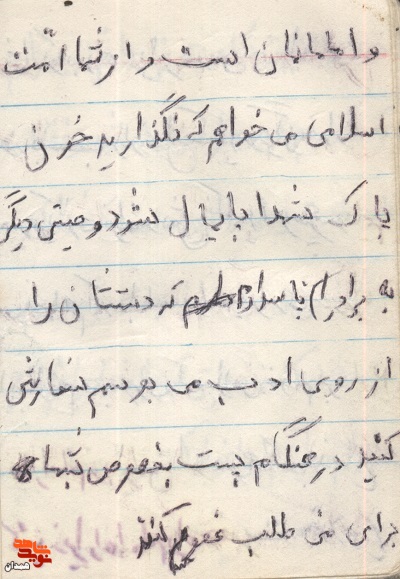 و امامانان است و از شما امت
اسلامی می خواهم که نگذارید خون
پاک شهدا پایمال شود وصیتی دیگر
به برادرام پاسدارم که دستتان را
از روی ادب می بوسم سفارشی
کنید در هنگام پست بخصوص شبها
برای من طلب عفو کنند
نوید شاهد
همدان